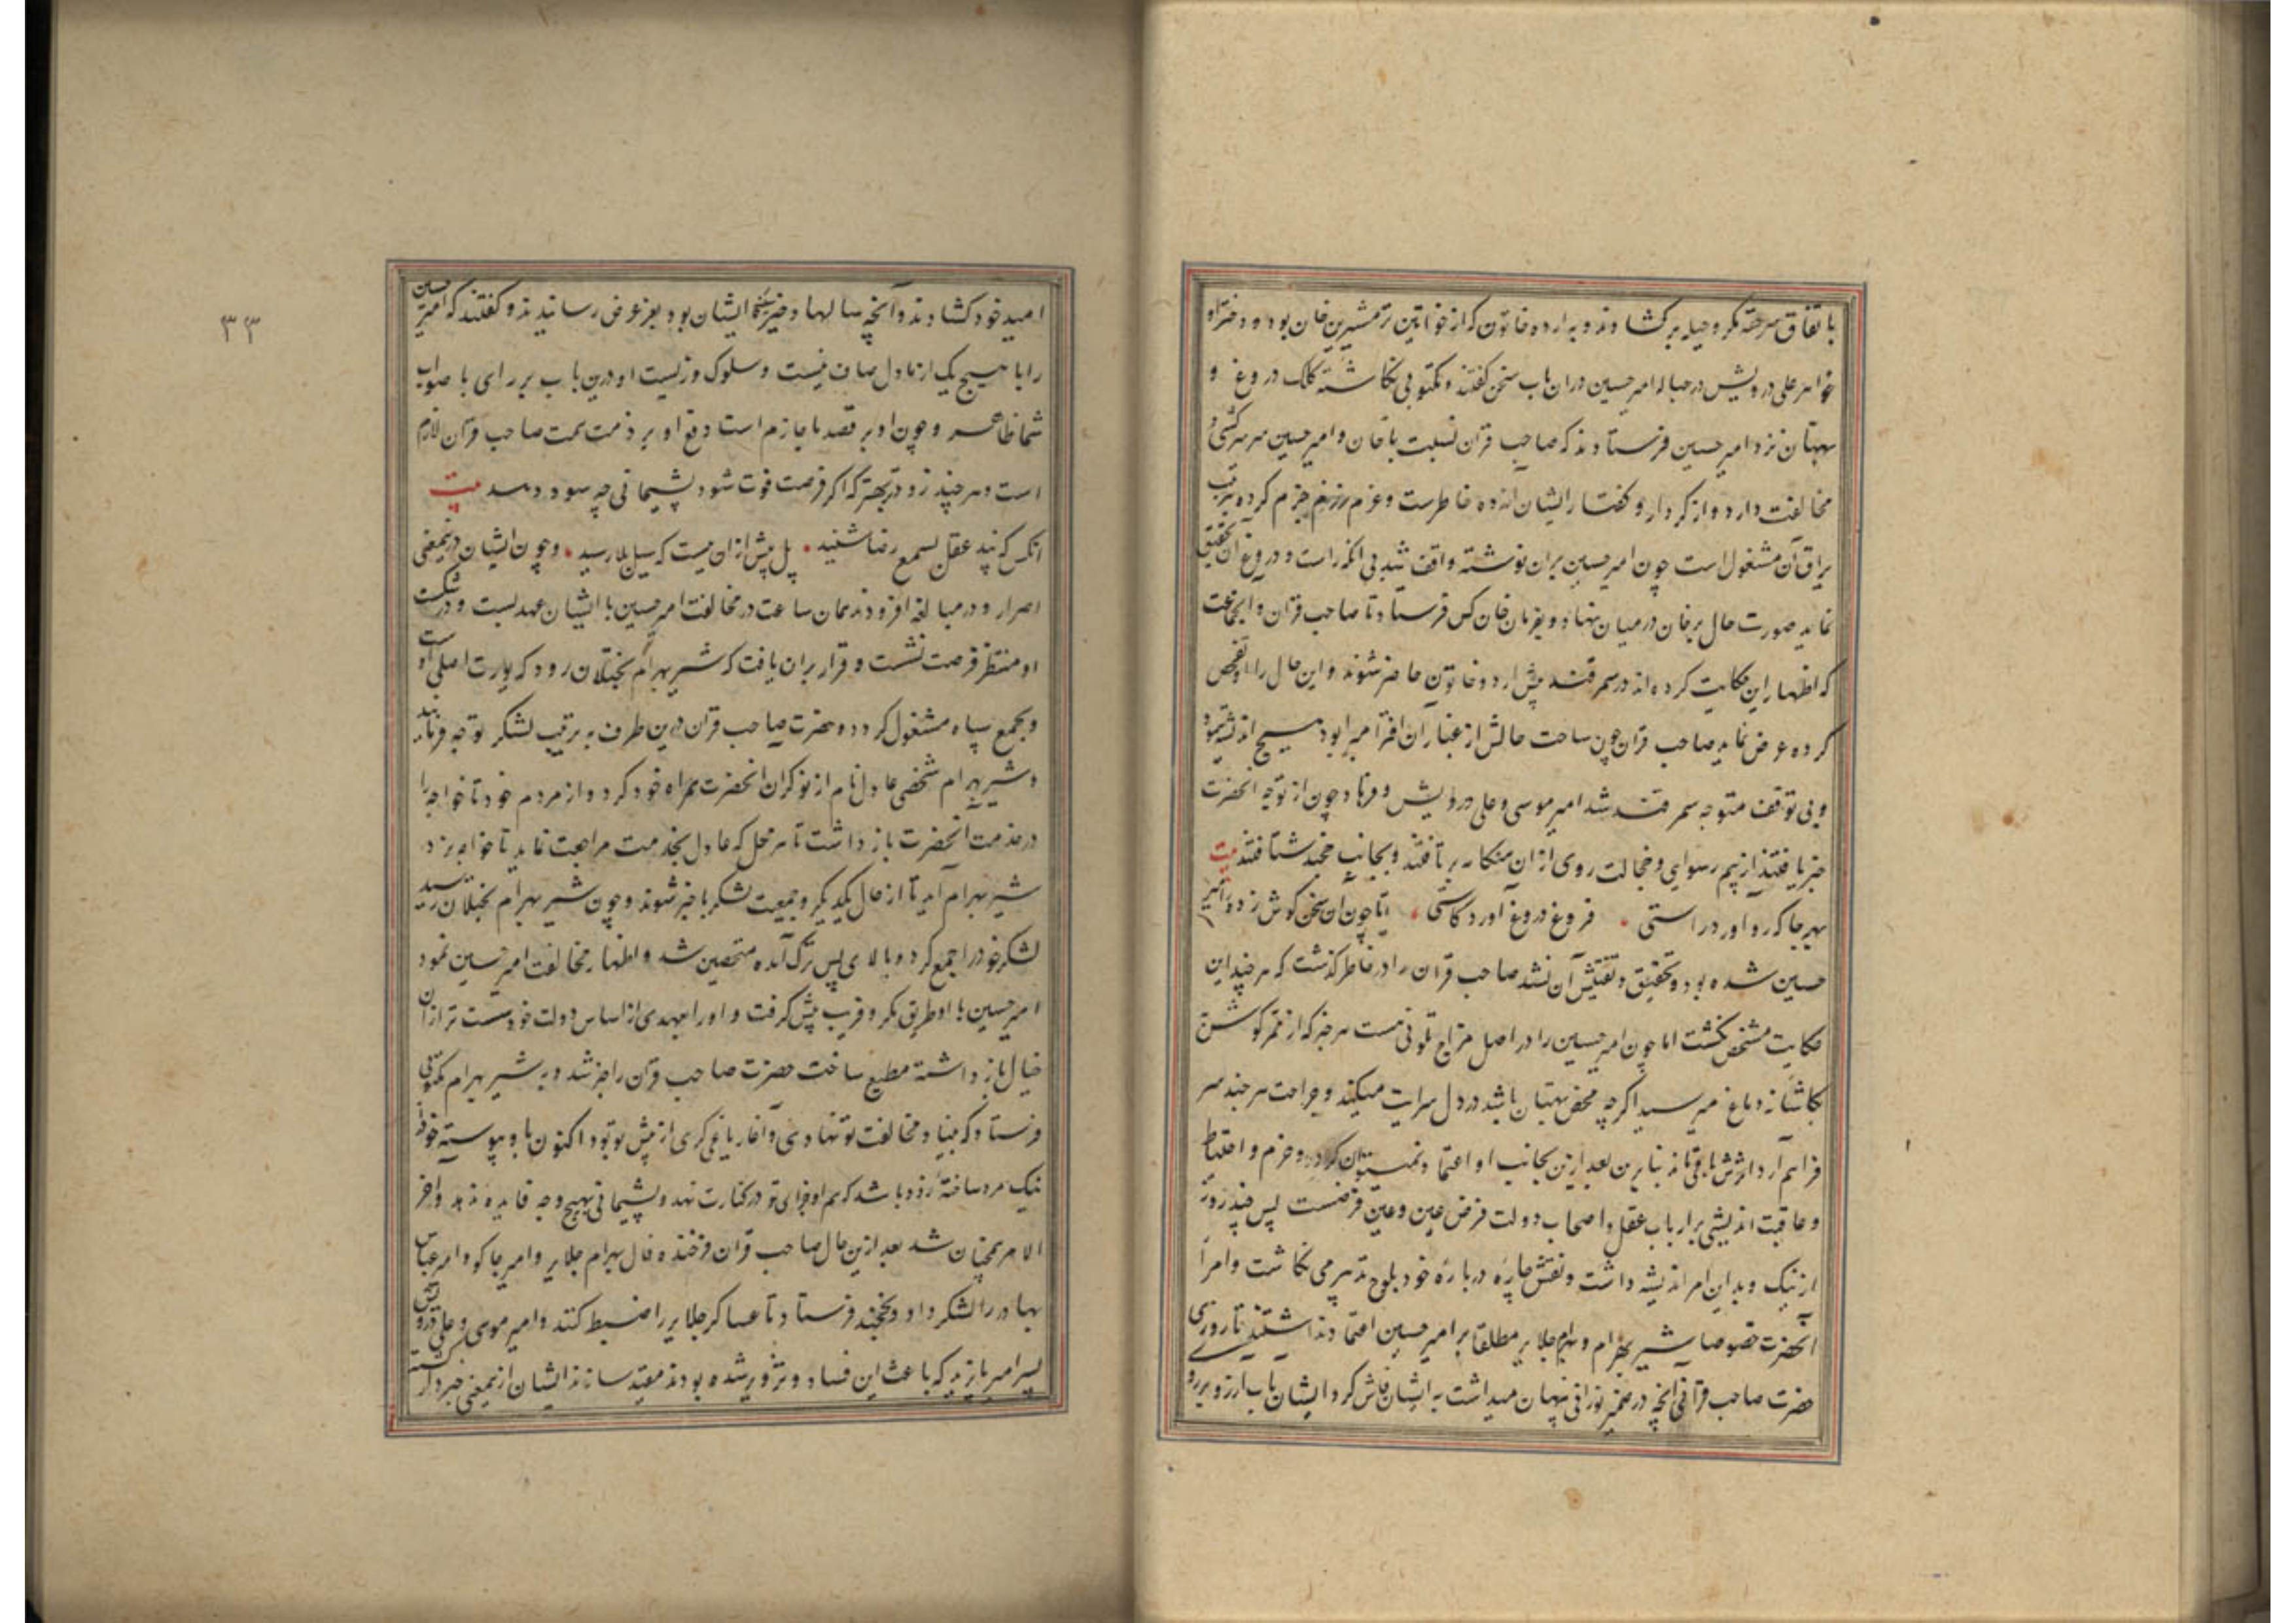 باتفاق سرحقه مکر و حیله برکشادند و به اردو خاتون که از خواتین ترمشیرین خان بود و دختر او
خواهر علی درویش در حباله امیر حسین دران باب سخن کفتند و مکتوبی نکاشته کلک دروغ و
بهتان نزد امیر حسین فرستادند که صاحب قران نسبت با خان و امیر حسین سر سرکشی و
مخالفت دارد و از کردار و کفتار ایشان ازده خاطرست و عزم رزم جزم کرده بترتیب
یراق آن مشغول است چون امیر حسین بران نوشته واقف شد بی انکه راست و دروغ آن تحقیق
نماید صورت حال برخان درمیان نهاد و بفرمان خان کس فرستاد تا صاحب قران و انجماعت
که اظهار این حکایت کرده اند در سمرقند پیش اردو خاتون حاضر شوند و این حال را او تفحص
کرده عرض نماید صاحب قران چون ساحت حالش از غبار ان افترا مبرا بود هیچ اندیشه ننمود
و بی توقف متوجه سمرقند شد امیر موسی و علی درویش و فرهاد چون از توجه انحضرت
خبر یافتند از بیم رسوایی و خجالت روی از ان هنکامه برتافتند و بجانب خجند شتافتند بیت
بهر جا که رو اورد راستی • فروغ دروغ آورد کاستی • اما چون ان سخن کوش زده امیر
حسین شده بود و تحقیق و تفتیش آن نشد صاحب قران را در خاطر کذشت که هر چند این
حکایت مشخص نکشت اما چون امیر حسین را در اصل مزاج تلونی هست هر خبر که از ممر کوش
کاشانه دماغ میرسد اکرچه محض بهتان باشد در دل سرایت میکند و جراحت هر چند سر
فراهم آرد اثرش باقی ماند بنابرین بعد ازین بجانب او اعتماد نمیتوان کرد و حزم و احتیاط
و عاقبت اندیشی بر ارباب عقل و اصحاب دولت فرض عین و عین فرضست پس چند روز
از نیک و بد این امر اندیشه داشت و نقش چاره درباره خود بلوح تدبیر می نکاشت و امرا
انحضرت خصوصا شیر بهرام و بهرام جلایر مطلقا بر امیر حسین اعتماد نداشتند تا روزی
حضرت صاحب قرانی انچه در ضمیر نورانی پنهان میداشت به ایشان فاش کرد ایشان باب ارزو بر رو
۳۳
امید خود کشادند و آنچه سالها دخیره ایشان بود بعز عرض رسانیدند و کفتند که امیر حسین
را با هیچ یک از ما دل صاف نیست و سلوک و زیست او درین باب بر رای با صواب
شما ظاهر و چون او بر قصد ما جازم است دفع او بر ذمت همت صاحب قران لازم
است و هر چند زودتر بهتر که اکر فرصت فوت شود پشیمانی چه سود دهد بیت
انکس که پند عقل بسمع رضا شنید • پل پیش ازان ببست که سیل بلا رسید • و چون ایشان درینمعنی
اصرار و در مبالغه افزودند همان ساعت در مخالفت امیر حسین با ایشان عهد بست و در شکست
او منتظر فرصت نشست و قرار بران یافت که شیر بهرام بختلان رود که یورت اصلی اوست
و بجمع سپاه مشغول کردد و حضرت صاحب قران درین طرف به ترتیب لشکر توجه فرماید
و شیر بهرام شخصی عادل نام از نوکران انحضرت همراه خود کرد و از مردم خود تاخواجه را
در خدمت انحضرت باز داشت تا هر محل که عادل بخدمت مراجعت نماید تاخواجه نزد
شیر بهرام آید تا از حال یکدیکر و جمعیت لشکر باخبر شوند و چون شیر بهرام بختلان رسید
لشکر خود را جمع کرده بالای پس ترک آمده متحصن شد و اظهار مخالفت امیر حسین نمود
امیر حسین با او طریق مکر و فریب پیش کرفت و اورا بعهدی از اساس دولت خود سست تر از ان
خیال باز داشته مطیع ساخت حضرت صاحب قران را خبر شد و به شیر بهرام مکتوبی
فرستاد که بنیاد مخالفت تو نهادی و آغاز یاغی کری از پیش تو بود اکنون با و پیوسته خود را
نیک مرد ساخته زود باشد که هم او جزای تو در کنارت نهد و پشیمانی بهیچ وجه فایده ندهد و اخر
الامر همچنان شد بعد ازین حال صاحب قران فرخنده فال بهرام جلایر و امیر جاکو و امیر عباس
بهادر را لشکر داد و بخجند فرستاد تا عساکر جلایر را ضبط کنند و امیر موسی و علی درویش
پسر امیر بایزید که باعث این فساد و تزویر شده بودند مقید سازند ایشان ازینمعنی خبردار کشته